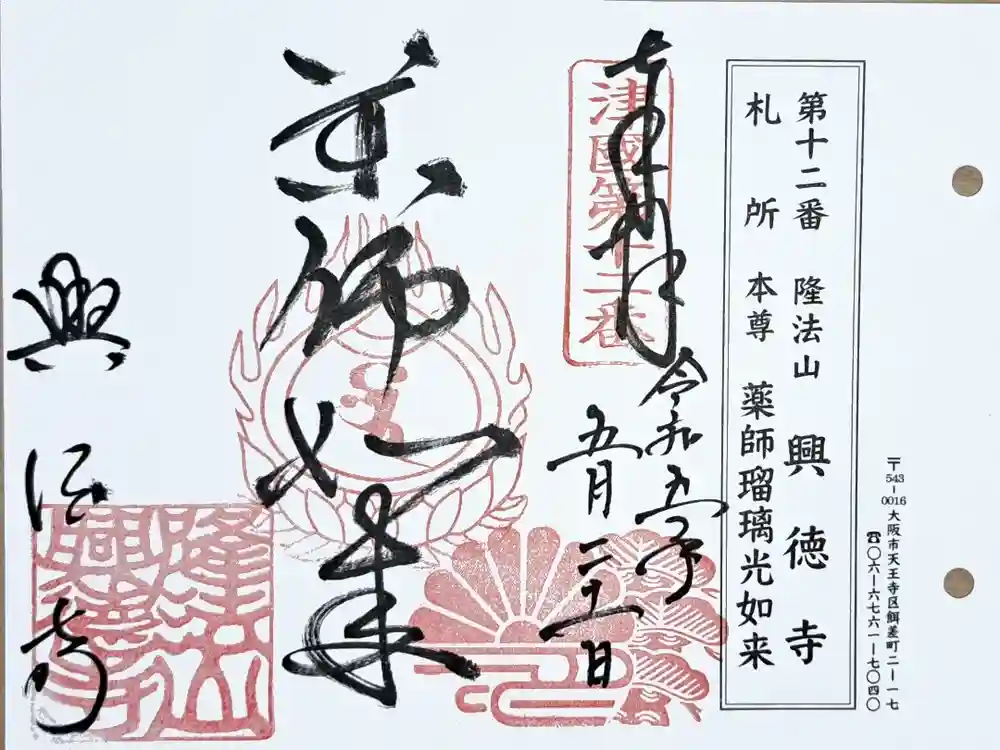 〒543-0016 大阪市天王寺区餌差町二ー一七
☎〇六ー六七六一ー七〇四〇
第十二番 隆法山 興徳寺
札所 本尊 薬師瑠璃光如来
奉拝
津國第十二番
令和五年
五月二十一日
薬師如来
興徳寺
隆法山
興徳寺